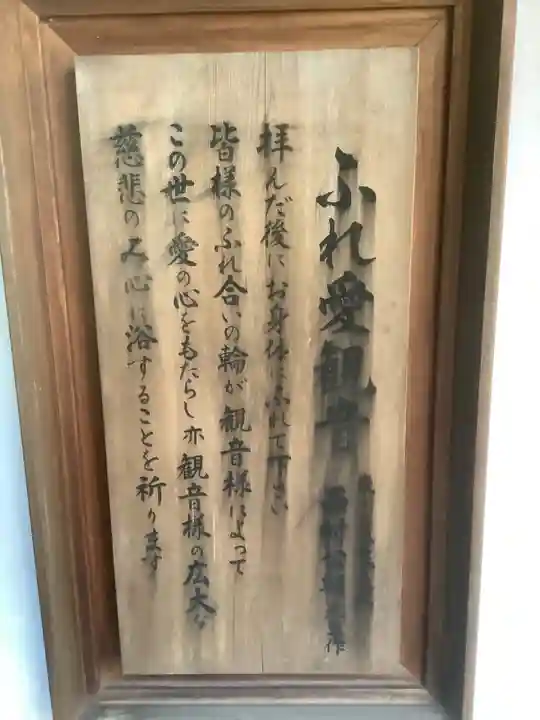 ふれ愛観音
作
拝んだ後にお身体にふれて下さい
皆様のふれ合いの輪が観音様によって
この世に愛の心をもたらし亦観音様の広大な
慈悲のみ心に浴することを祈ります